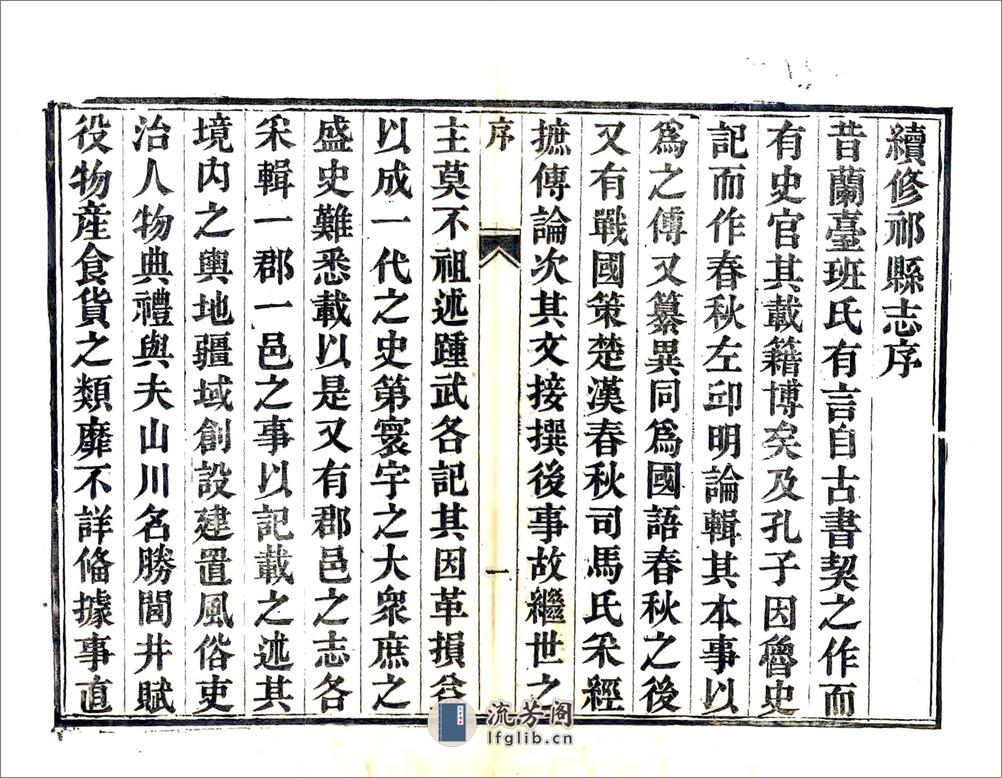 續修祁縣志序
昔蘭臺班氏有言自古書契之作而
有史官其載籍博矣及孔子因魯史
記而作春秋左邱明論輯其本事以
爲之傳又纂異同爲國語春秋之後
又有戰國策楚漢春秋司馬氏采經
摭傳論次其文接撰後事故繼世之
序
一
主莫不祖述踵武各記其因革損益
以成一代之史第寰宇之大衆庶之
盛史難悉載以是又有郡邑之志各
采輯一郡一邑之事以記載之述其
境内之輿地疆域創設建置風俗吏
治人物典禮與夫山川名勝閭井賦
役物産食貨之類靡不詳俻據事直
流芳阁
lfglib.cn